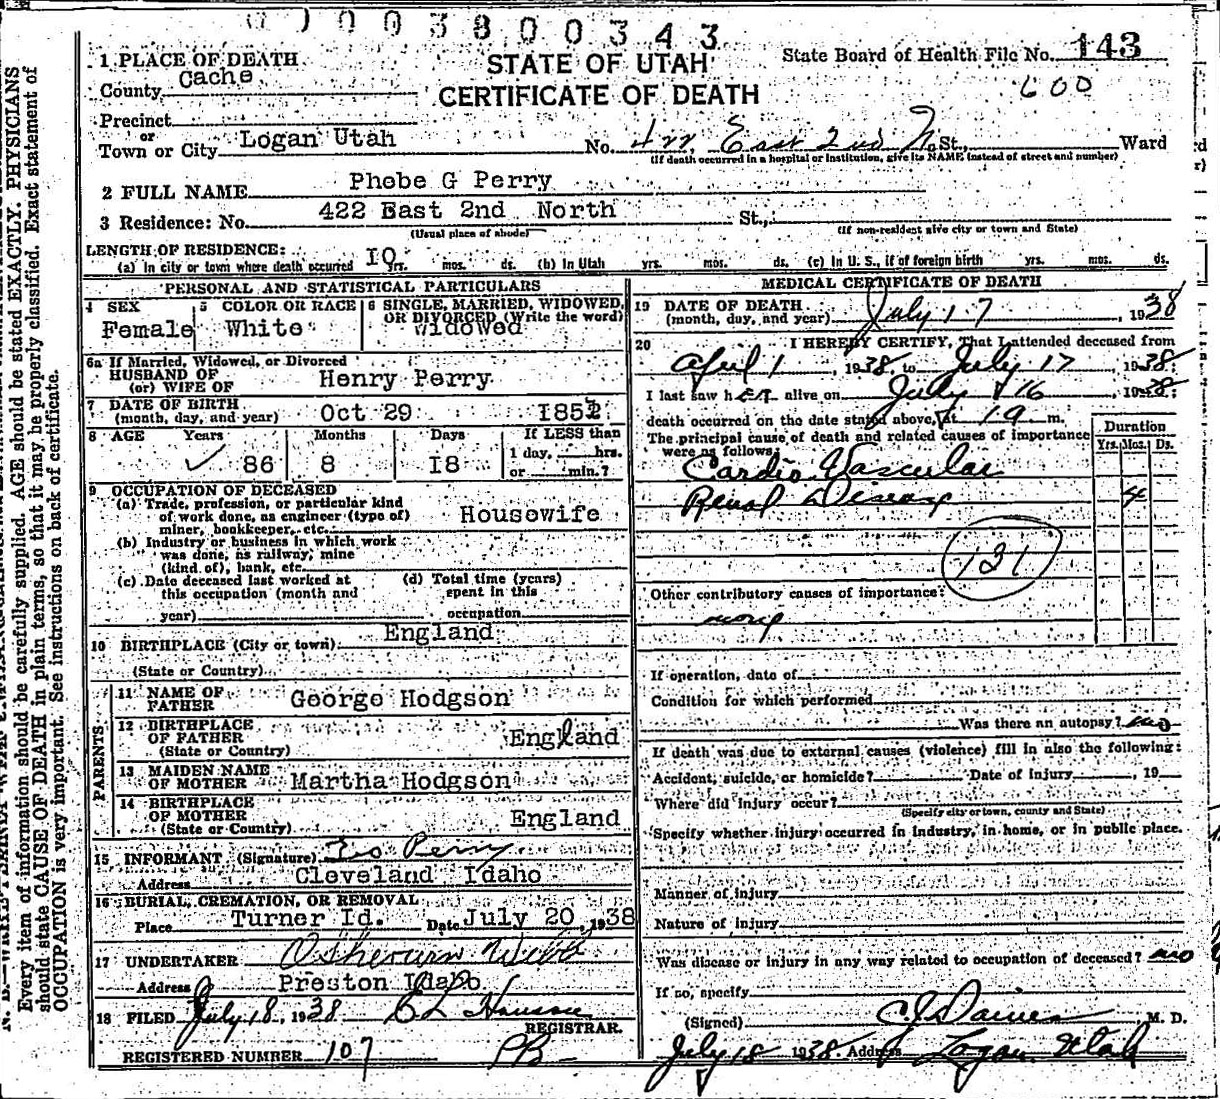 003800343
STATE OF UTAH
CERTIFICATE OF DEATH
State Board of Health File No. 143
600
1 PLACE OF DEATH
County Cache
Precinct
or
Town or City Logan Utah No. 422 East 2nd N. St., Ward
(If death occurred in a hospital or institution, give its NAME instead of street and number)
2 FULL NAME Phebe G Perry
3 Residence: No. 422 East 2nd North St.,
(Usual place of abode) (If non-resident give city or town and State)
LENGTH OF RESIDENCE:
(a) In city or town where death occurred 10 yrs. mos. ds. (b) In Utah yrs. mos. ds. (c) In U. S., if of foreign birth yrs. mos. ds.
PERSONAL AND STATISTICAL PARTICULARS
4 SEX Female
5 COLOR OR RACE White
6 SINGLE, MARRIED, WIDOWED, OR DIVORCED (Write the word) Widowed
6a If Married, Widowed, or Divorced
HUSBAND OF
(or) WIFE OF Henry Perry
7 DATE OF BIRTH
(month, day, and year) Oct 29 1852
8 AGE Years Months Days If LESS than
86 8 18 1 day, hrs.
or min.?
9 OCCUPATION OF DECEASED
(a) Trade, profession, or particular kind
of work done, as engineer (type of)
miner, bookkeeper, etc. Housewife
(b) Industry or business in which work
was done, as railway, mine
(kind of), bank, etc.
(c) Date deceased last worked at
this occupation (month and
year)
(d) Total time (years)
spent in this
occupation
10 BIRTHPLACE (City or town) England
(State or Country)
PARENTS
11 NAME OF
FATHER George Hodgson
12 BIRTHPLACE
OF FATHER England
(State or Country)
13 MAIDEN NAME
OF MOTHER Martha Hodgson
14 BIRTHPLACE
OF MOTHER England
(State or Country)
15 INFORMANT (Signature) Geo Perry
Address Cleveland Idaho
16 BURIAL, CREMATION, OR REMOVAL
Place Turner Id. Date July 20, 1938
17 UNDERTAKER Webb
Address Preston Idaho
18 FILED July 18, 1938 Hansen
REGISTRAR.
REGISTERED NUMBER 107
MEDICAL CERTIFICATE OF DEATH
19 DATE OF DEATH
(month, day, and year) July 17, 1938
20 I HEREBY CERTIFY, That I attended deceased from
April 1, 1938, to July 17, 1938;
I last saw her alive on July 16, 1938;
death occurred on the date stated above, at m.
The principal cause of death and related causes of importance
were as follows:
Duration
Yrs. Mos. Ds.
Cardio Vascular
Renal Disease 4
131
Other contributory causes of importance:
none
If operation, date of
Condition for which performed
Was there an autopsy? no
If death was due to external causes (violence) fill in also the following:
Accident, suicide, or homicide? Date of injury, 19
Where did injury occur?
(Specify city or town, county and State)
Specify whether injury occurred in industry, in home, or in public place.
Manner of injury
Nature of injury
Was disease or injury in any way related to occupation of deceased? no
If so, specify
(Signed) C J Daines M. D.
July 18 1938. Address Logan Utah
Every item of information should be carefully supplied. AGE should be stated EXACTLY. PHYSICIANS
should state CAUSE OF DEATH in plain terms, so that it may be properly classified. Exact statement of
OCCUPATION is very important. See instructions on back of certificate.